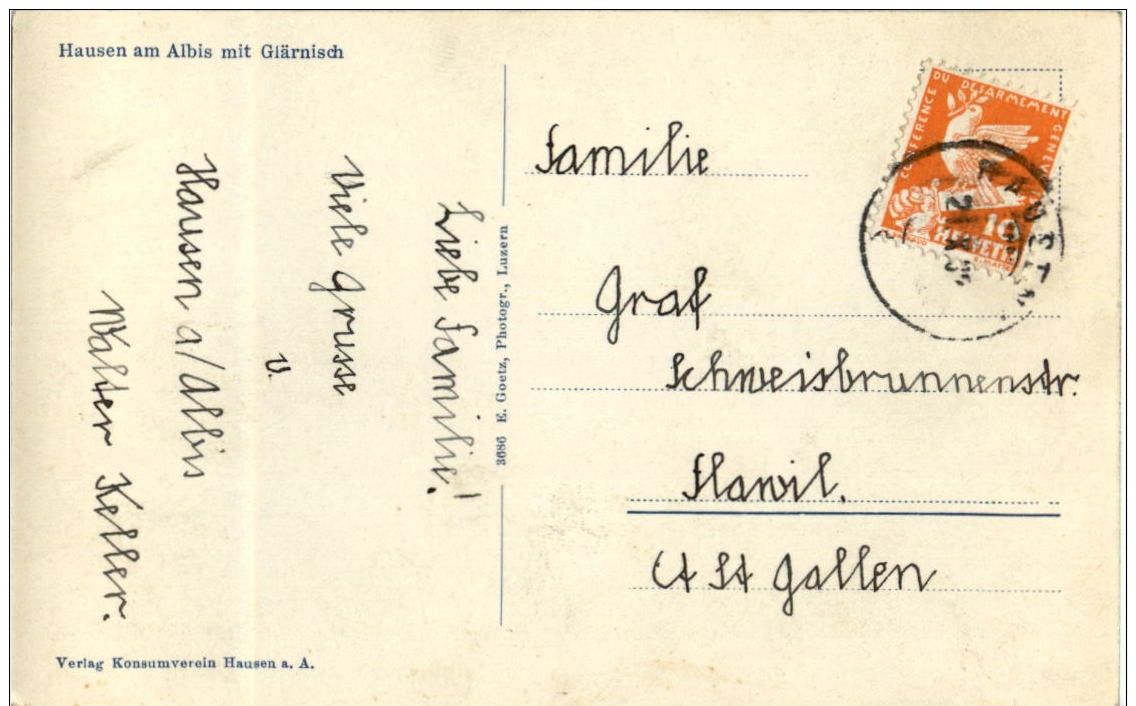 Hausen am Albis mit Glärnisch
Liebe Familie!
Viele Grusse
v.
Hausen a/Albis
Walter Keller.
Verlag Konsumverein Hausen a. A.
3686 E. Goetz, Photogr., Luzern
CONFERENCE DU DESARMEMENT GENEVE
10
HELVETIA
Familie
Graf
Schweisbrunnenstr.
Flawil.
Ct St Gallen